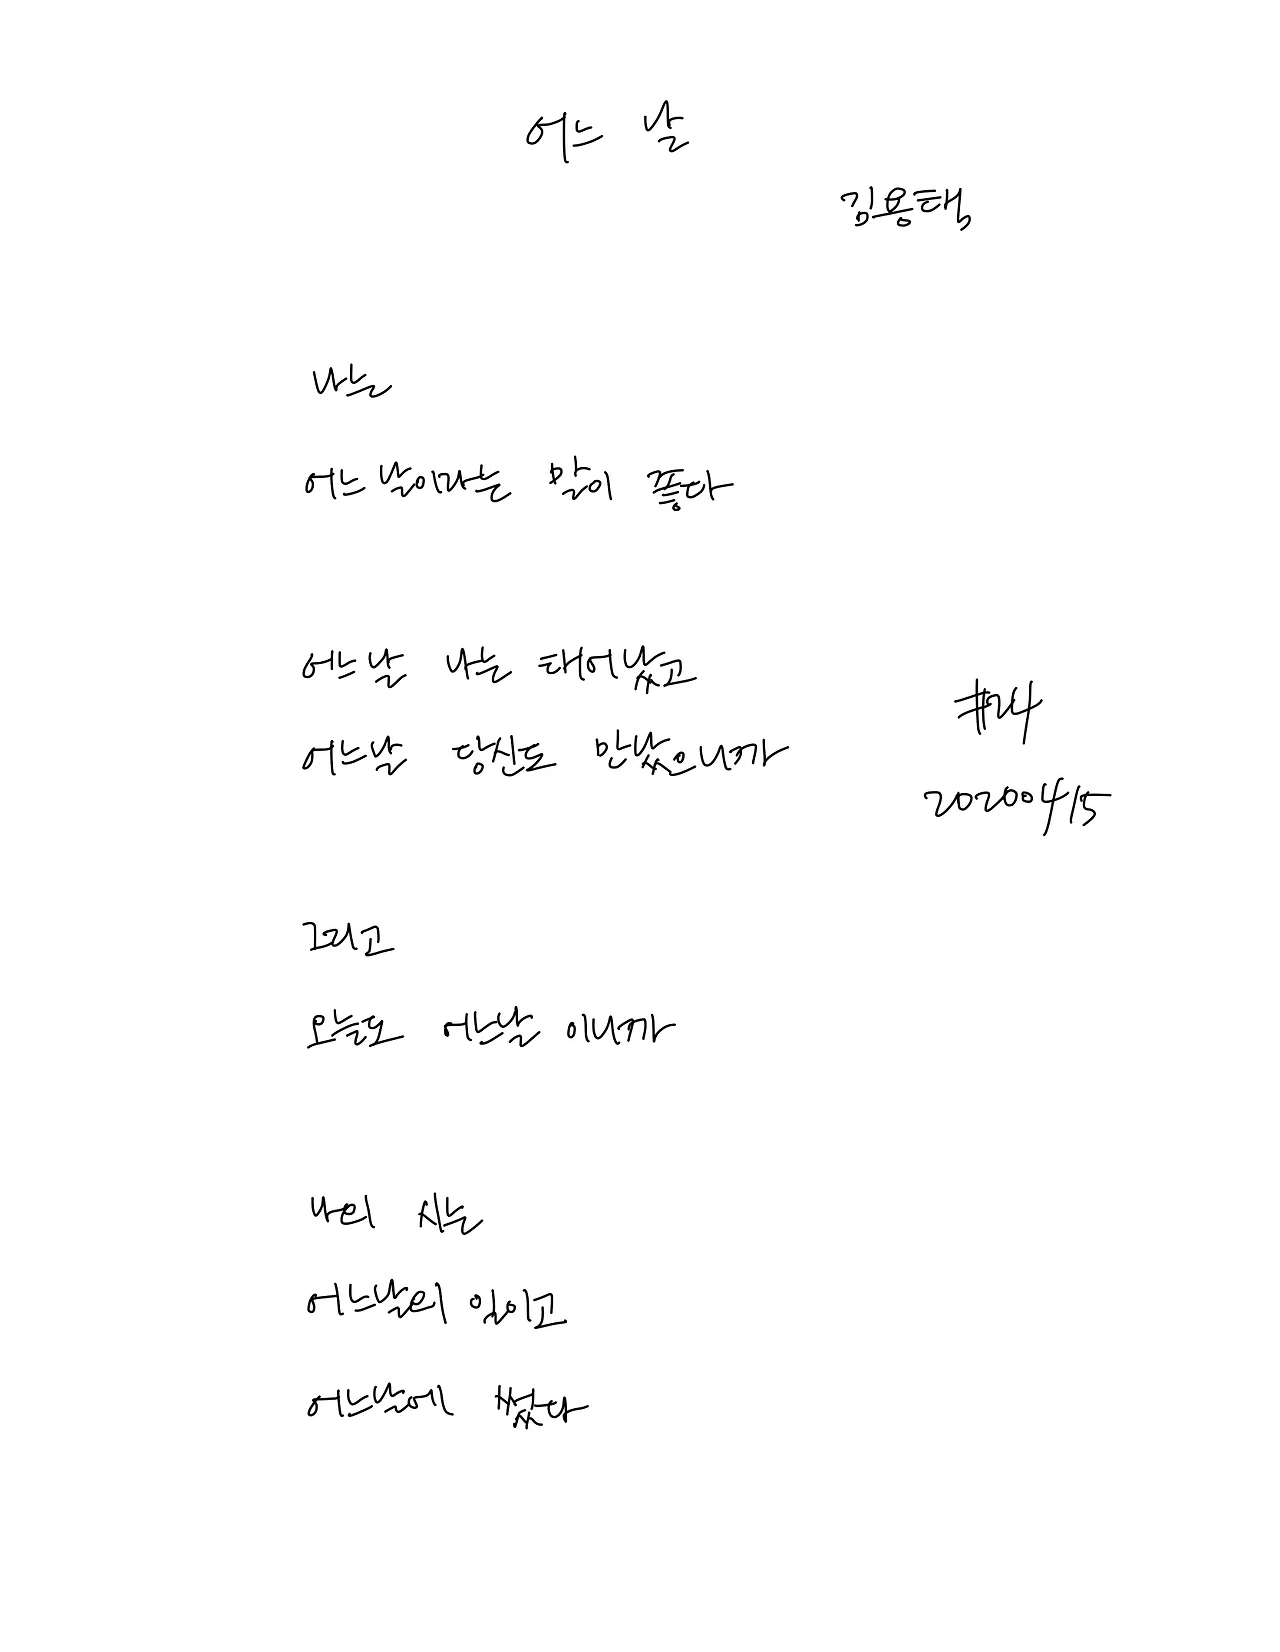 어느 날
김용택
나는
어느날이라는 말이 좋다
어느날 나는 태어났고
어느날 당신도 만났으니까
#24
20200415
그리고
오늘도 어느날 이니까
나의 시는
어느날의 일이고
어느날에 썼다